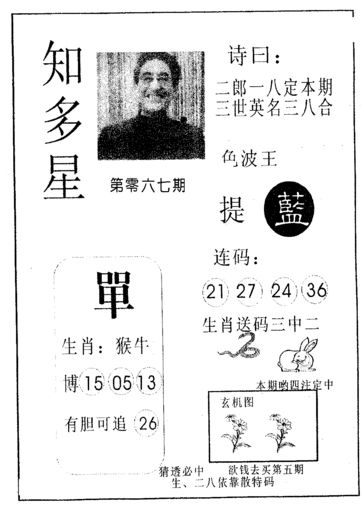 知多星
第零六七期
诗曰：
二郎一八定本期
三世英名三八合
色波王
提 藍
连码：
21 27 24 36
生肖送码三中二
單
生肖：猴牛
博 15 05 13
有胆可追 26
本期哟四注定中
玄机图
猜透必中 欲钱去买第五期
生、二八依靠散特码